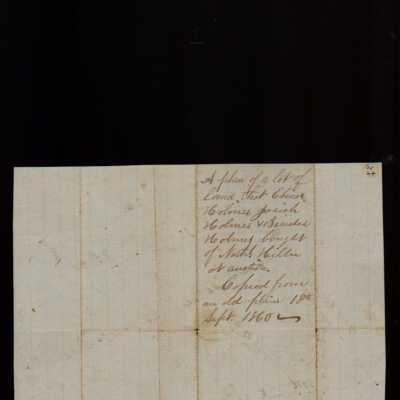 A plan of a lot of
Land that
Holmes Josiah
Holmes &
Holmes bought
of
at auction
Copied from
an old plan 18th
Sept. 1860